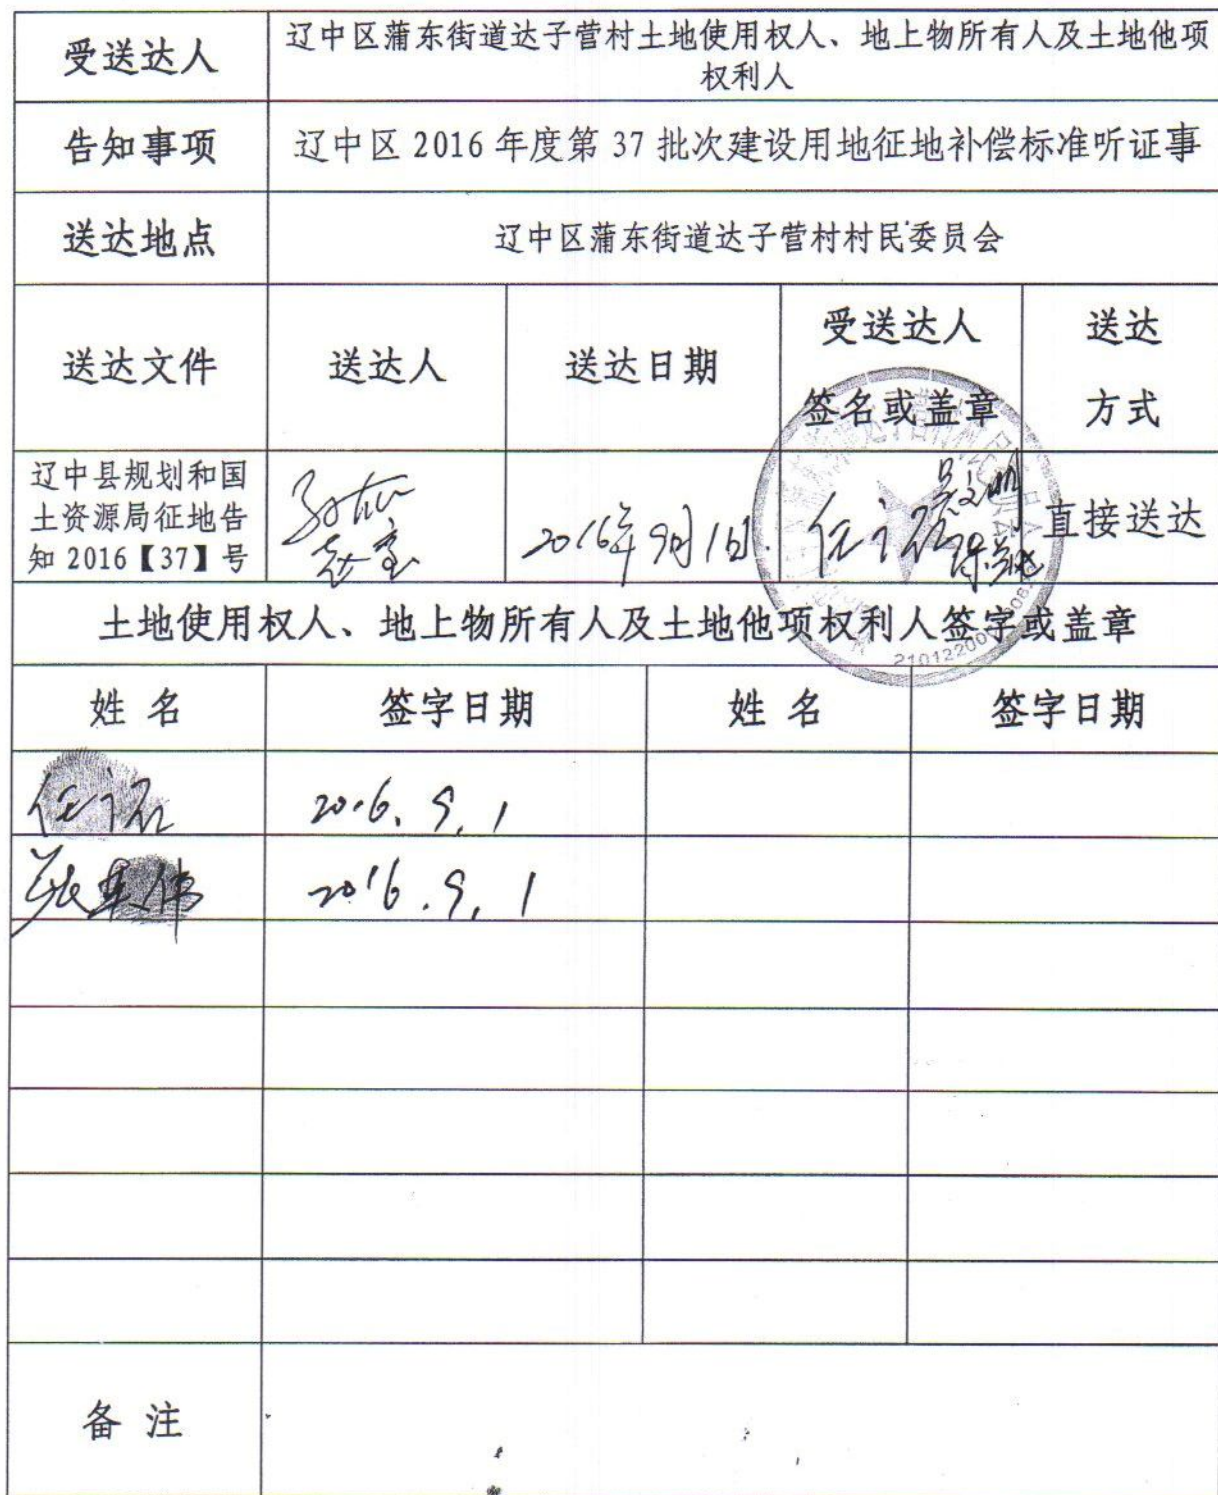 受送达人
辽中区蒲东街道达子营村土地使用权人、地上物所有人及土地他项
权利人
告知事项
辽中区 2016 年度第 37 批次建设用地征地补偿标准听证事
送达地点
辽中区蒲东街道达子营村村民委员会
送达文件
送达人
送达日期
受送达人
签名或盖章
送达
方式
辽中县规划和国
土资源局征地告
知 2016【37】号
2016年9月1日
直接送达
土地使用权人、地上物所有人及土地他项权利人签字或盖章
姓 名
签字日期
姓 名
签字日期
2016.9.1
2016.9.1
备 注